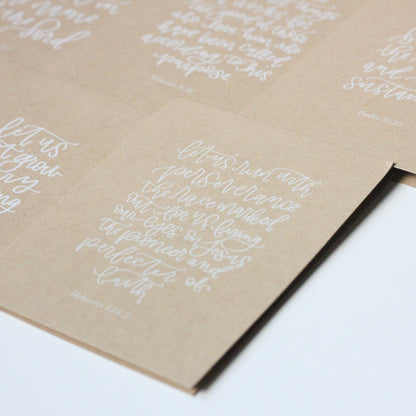 name
Lord
for
those
who love him who
have been called
according to his
purpose
Romans 8:28
the
and
sustain
Psalm 55:22
let us
not grow
let us run with
perseverance
the race marked
out for us fixing
our eyes on Jesus
the pioneer and
perfecter of
faith
Hebrews 12:1-2